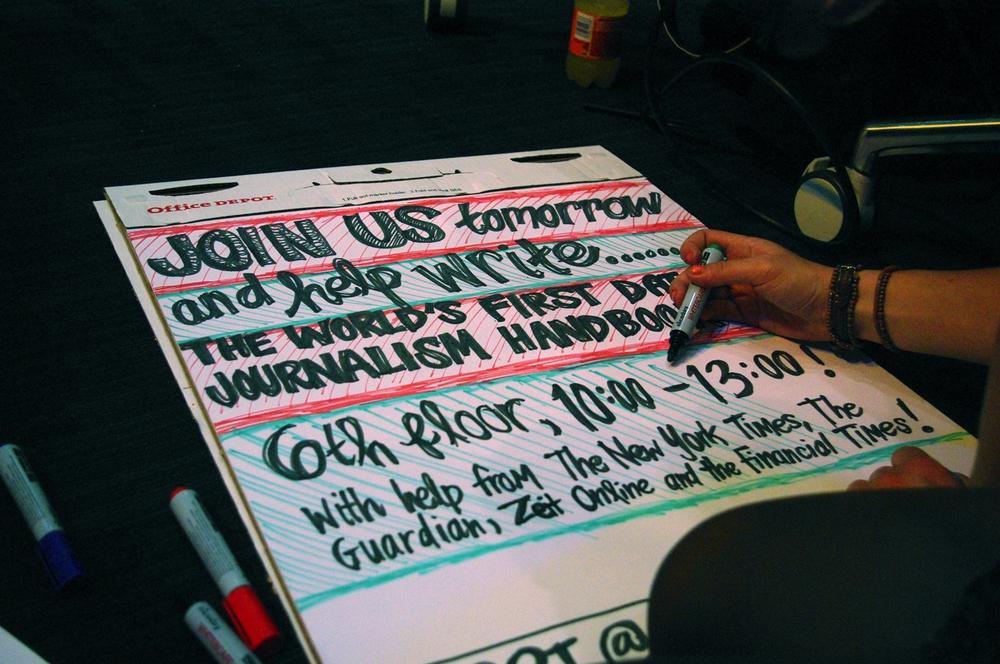 Office DEPOT.
JOIN US tomorrow
and help write......
THE WORLD'S FIRST DAT
JOURNALISM HANDBOO
6th floor, 10:00 - 13:00!
with help from The New York Times, The
Guardian, Zeit Online and the Financial Times!
@